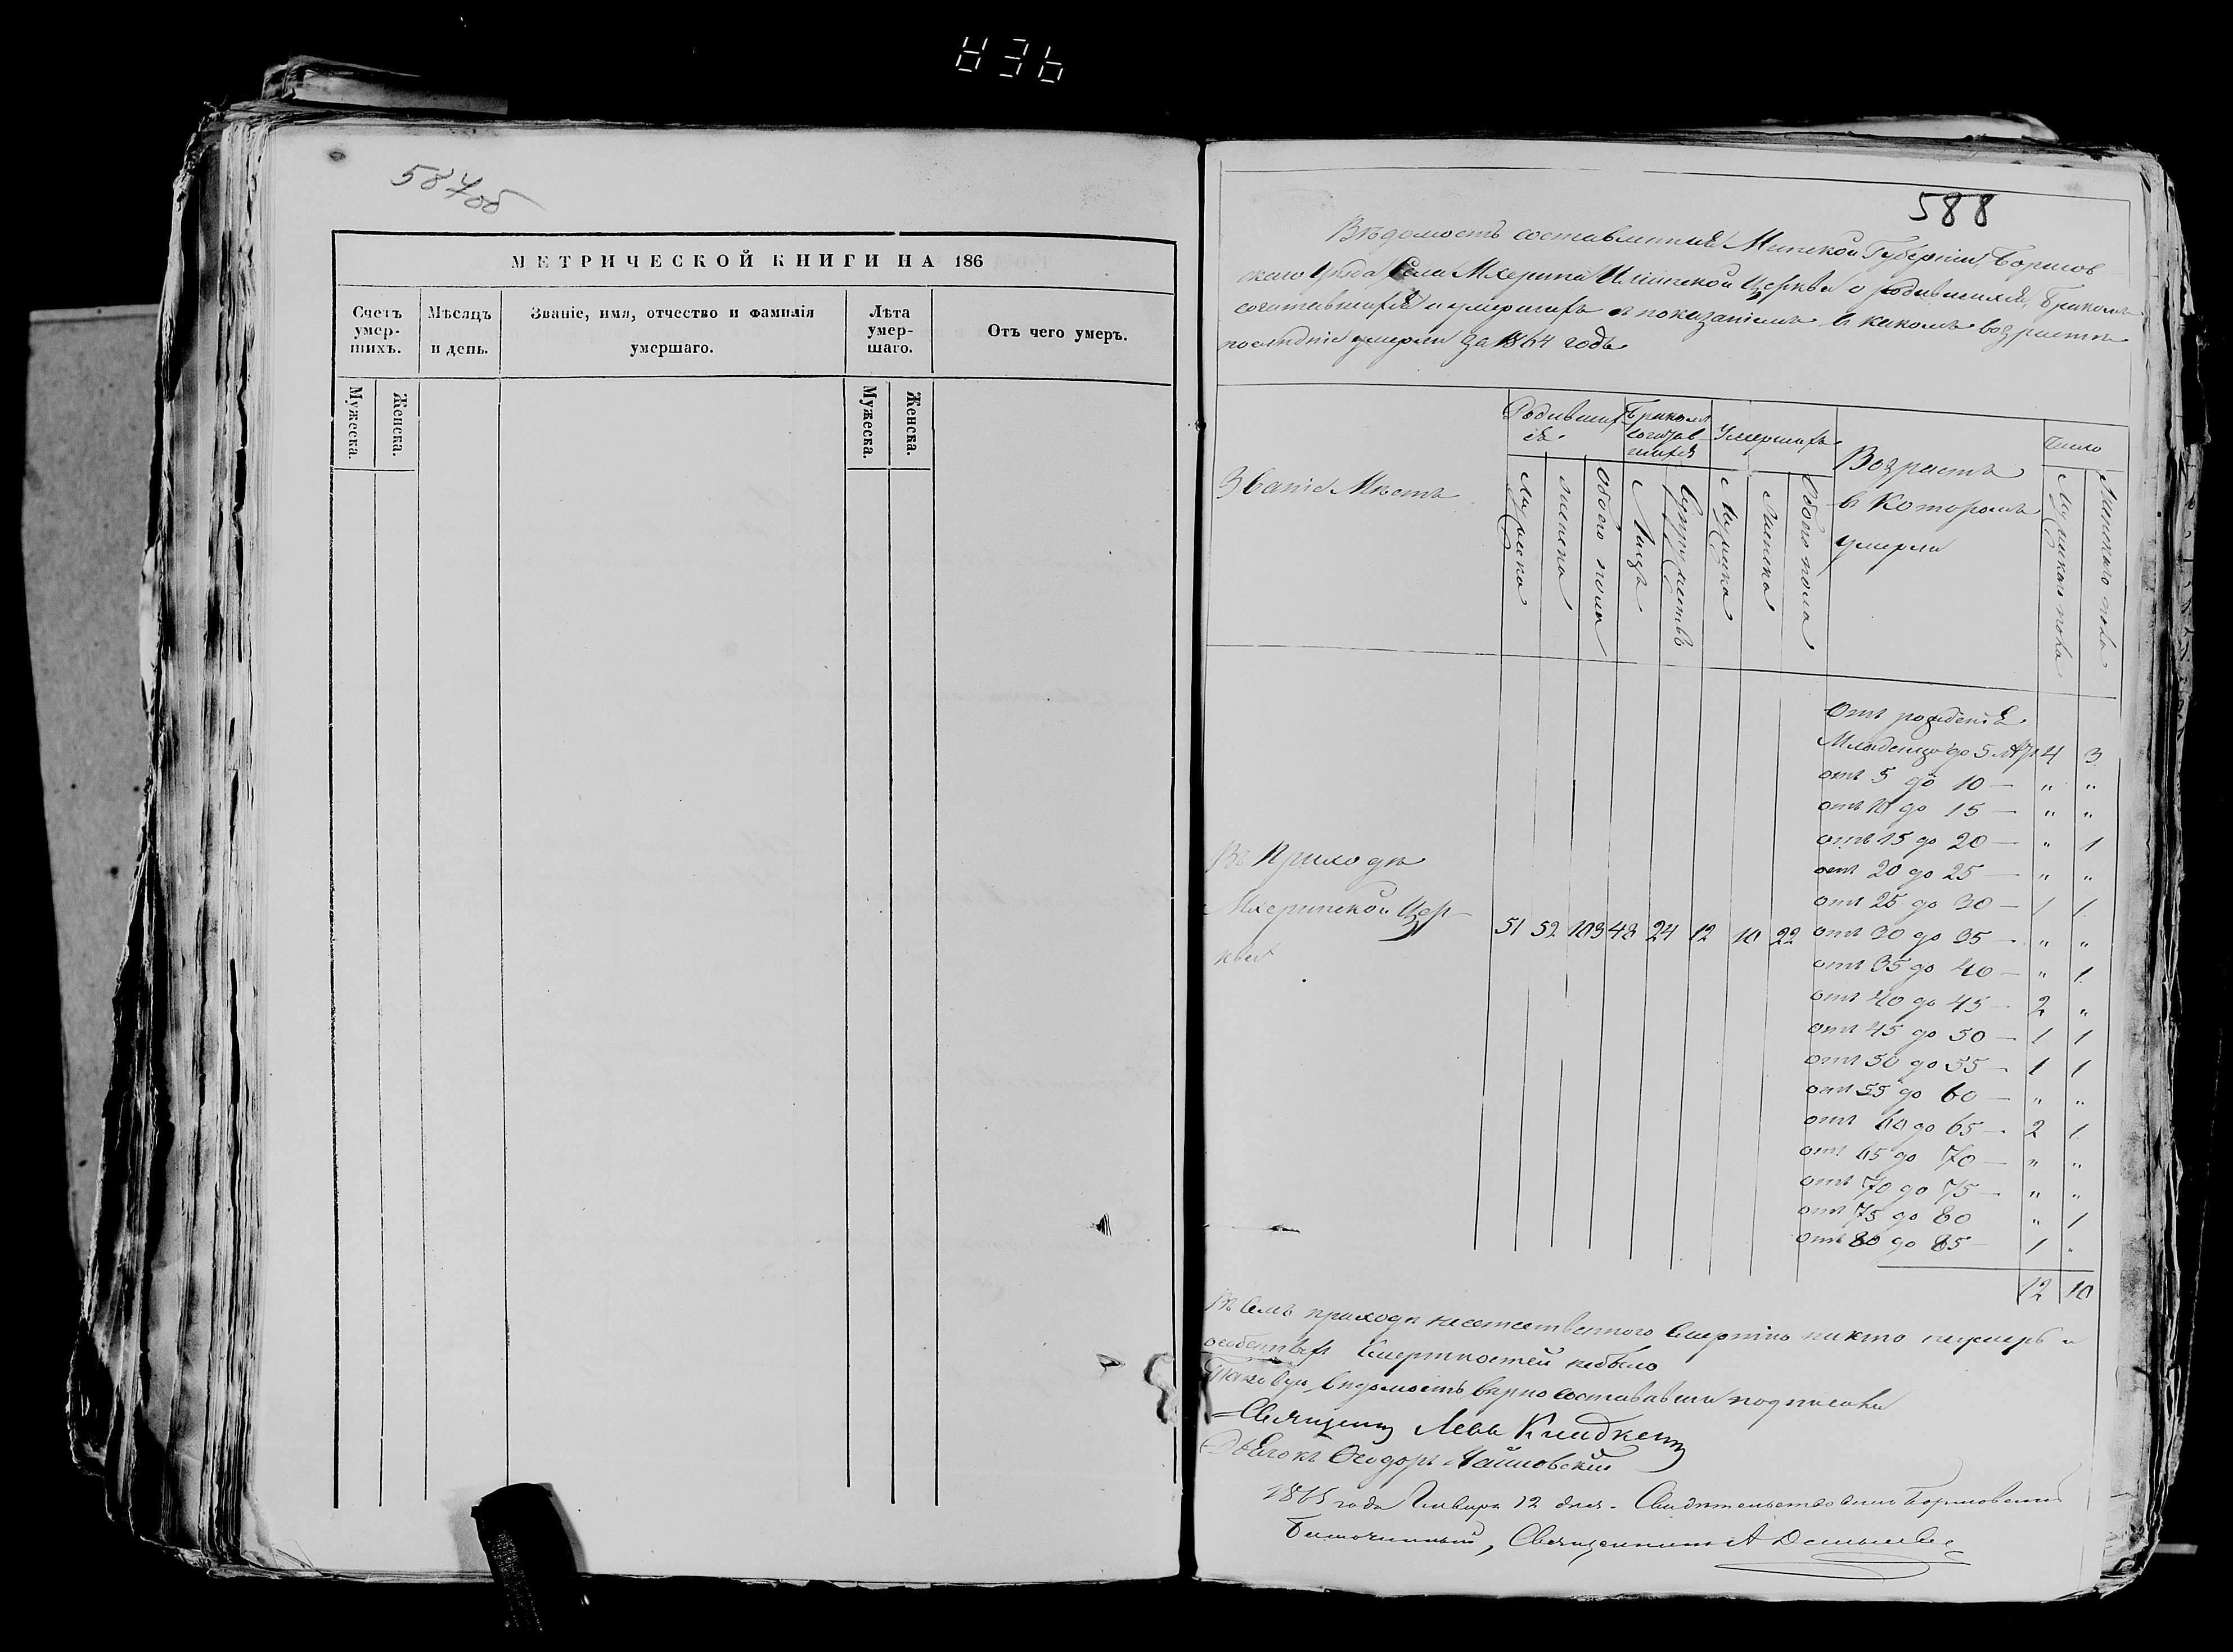 587об
МЕТРИЧЕСКОЙ КНИГИ НА 186
Счетъ умер-шихъ.
Мѣсяцъ и день.
Званіе, имя, отчество и фамилія умершаго.
Лѣта умер-шаго.
Отъ чего умеръ.
Мужеска.
Женска.
Мужеска.
Женска.
588
Вѣдомость составленная Минской Губерніи, Борисов
скаго Уѣзда Села Мхерина Ильинской Церкви о родившихся, бракомъ
сочетавшихся и умершихъ съ показаніемъ въ какомъ возрастѣ
послѣдніе умерли за 1864 годъ
Званіе Мѣстъ
Родивших
ся
Бракомъ
сочетав
шихся
Умершихъ
Возрастъ
въ Которомъ
умерли
Число
Мужска
Женска
Обоего пола
Лицъ
Супружествъ
Мужска
Женска
Обоего пола
Мужскаго пола
Женскаго пола
Отъ рожденія
Младенцы до 5 лѣтъ 4 3
отъ 5 до 10 — " "
отъ 10 до 15 — " "
отъ 15 до 20 — " 1
отъ 20 до 25 — " "
отъ 25 до 30 — 1 1
Въ Приходѣ
Мхеринской Цер-
кви
51 52 103 48 24 12 10 22
отъ 30 до 35 — " "
отъ 35 до 40 — " 1
отъ 40 до 45 — 2 "
отъ 45 до 50 — 1 1
отъ 50 до 55 — 1 1
отъ 55 до 60 — " "
отъ 60 до 65 — 2 1
отъ 65 до 70 — " "
отъ 70 до 75 — " "
отъ 75 до 80 " 1
отъ 80 до 85 — 1 "
12 10
Въ семъ приходѣ неестественного Смертію никто неумеръ и
особенныхъ Смертностей небыло
Таковую Вѣдомость вѣрно составивши подписали
Священник Левъ
Дьячокъ Ѳеодоръ
1865 года Генваря 12 дня. Свидѣтельствовалъ Борисовскій
Благочинный, Священникъ А